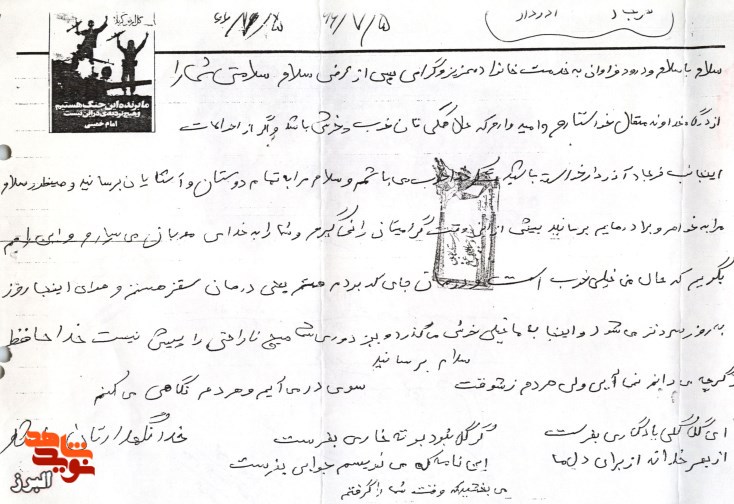 ۶۶/۷/۵
کربلا
ما برنده این جنگ هستیم
و هیچ تردیدی در این نیست
امام خمینی
سلام با سلام و درود فراوان به خدمت خانواده عزیز و گرامی پس از عرض سلام سلامتی شما را
از درگاه خداوند متعال خواستارم و امیدوارم که حال همگی تان خوب و خوش باشد و اگر از احوالات
اینجانب فرهاد آذردار خواسته باشید شکر خدا خوب می باشم و سلام مرا به تمام دوستان و آشنایان برسانید و همینطور سلام
مرا به خواهر و برادرهایم برسانید بیش از این وقت گرامیتان را نمی گیرم و شما را به خدای مهربان می سپارم و این را هم
بگویم که حال من خیلی خوب است جای که بودم هستم یعنی در همان سقز هستم و هوای اینجا روز
به روز سردتر می شود و اینجا با ما خیلی خوش می گذرد و بجز دوری شما هیچ ناراحتی را پیش نیست خدا حافظ
سلام برسانید
گرچه می دانم نمی آیی ولی هر دم ز شوقت
سوی در می آیم و هر دم نگاهی می کنم
ای گل گلی یادگاری بفرست
گر گل نبود بوته خاری بفرست
خدا نگهدارتان
از بهر خدا نه از برای دل ما
این نامه که می نویسم جوابی بفرست
می بخشید که وقت شما را گرفتم
نوید شاهد
البرز